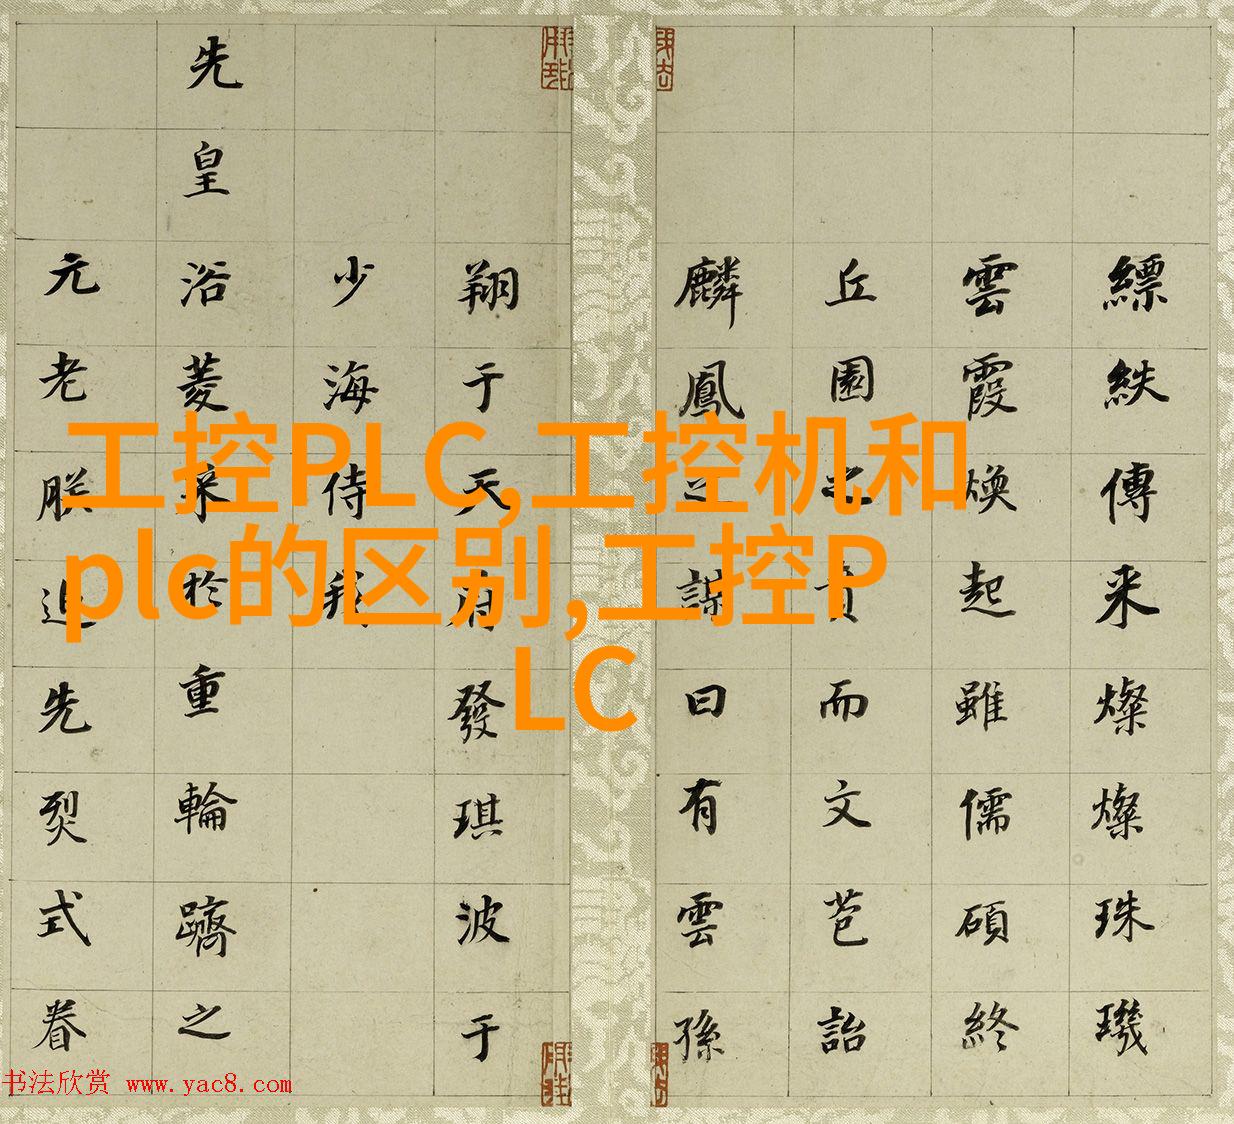 工控PLC,工控机和
plc的区别,工控P
LC
縹紩傳来燦燦珠璣
雲霞煥起雖儒碩終
丘園之賁而文芭詒
麟鳳之謀曰有雲孫
翔于天府發琪波于
少海侍我
先皇浴菱采於重輪躋之
元老朕追先烈式眷
书法欣赏 www.yac8.com